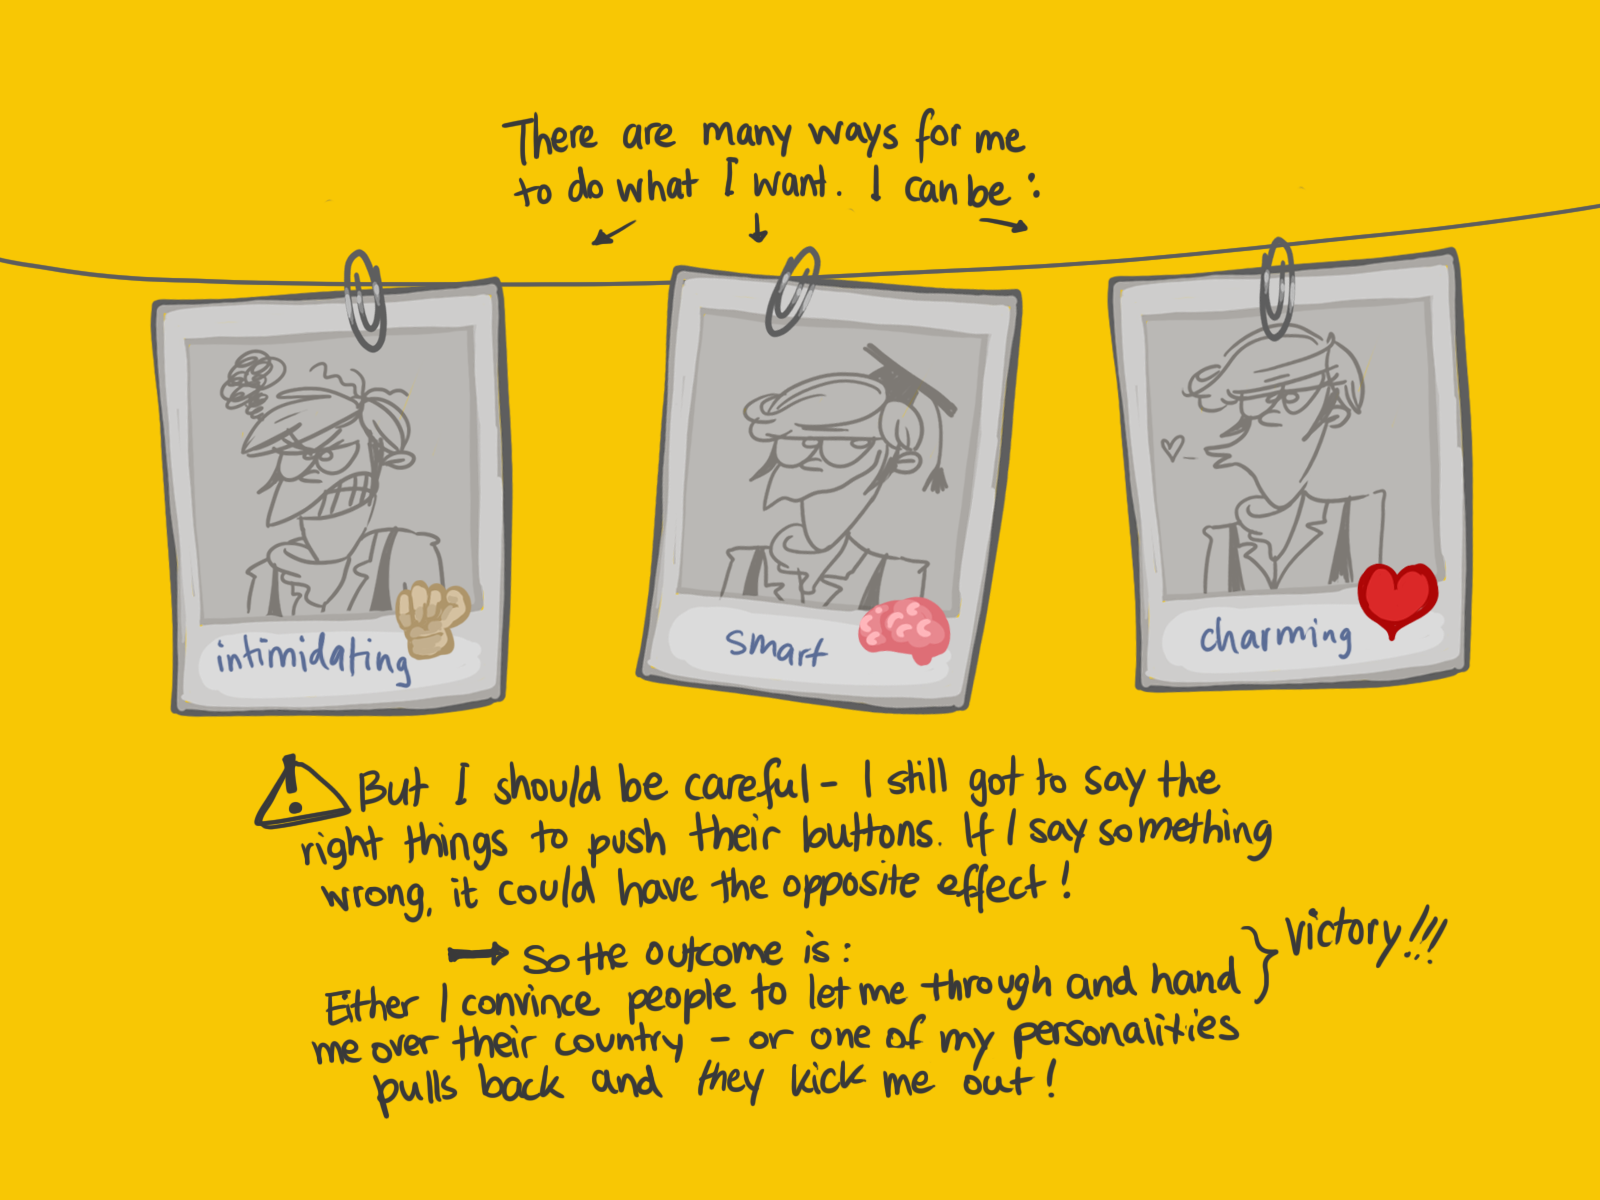 There are many ways for me
to do what I want. I can be:
intimidating
smart
charming
But I should be careful - I still got to say the
right things to push their buttons. If I say something
wrong, it could have the opposite effect!
So the outcome is:
Either I convince people to let me through and hand
me over their country - or one of my personalities
pulls back and they kick me out!
Victory!!!